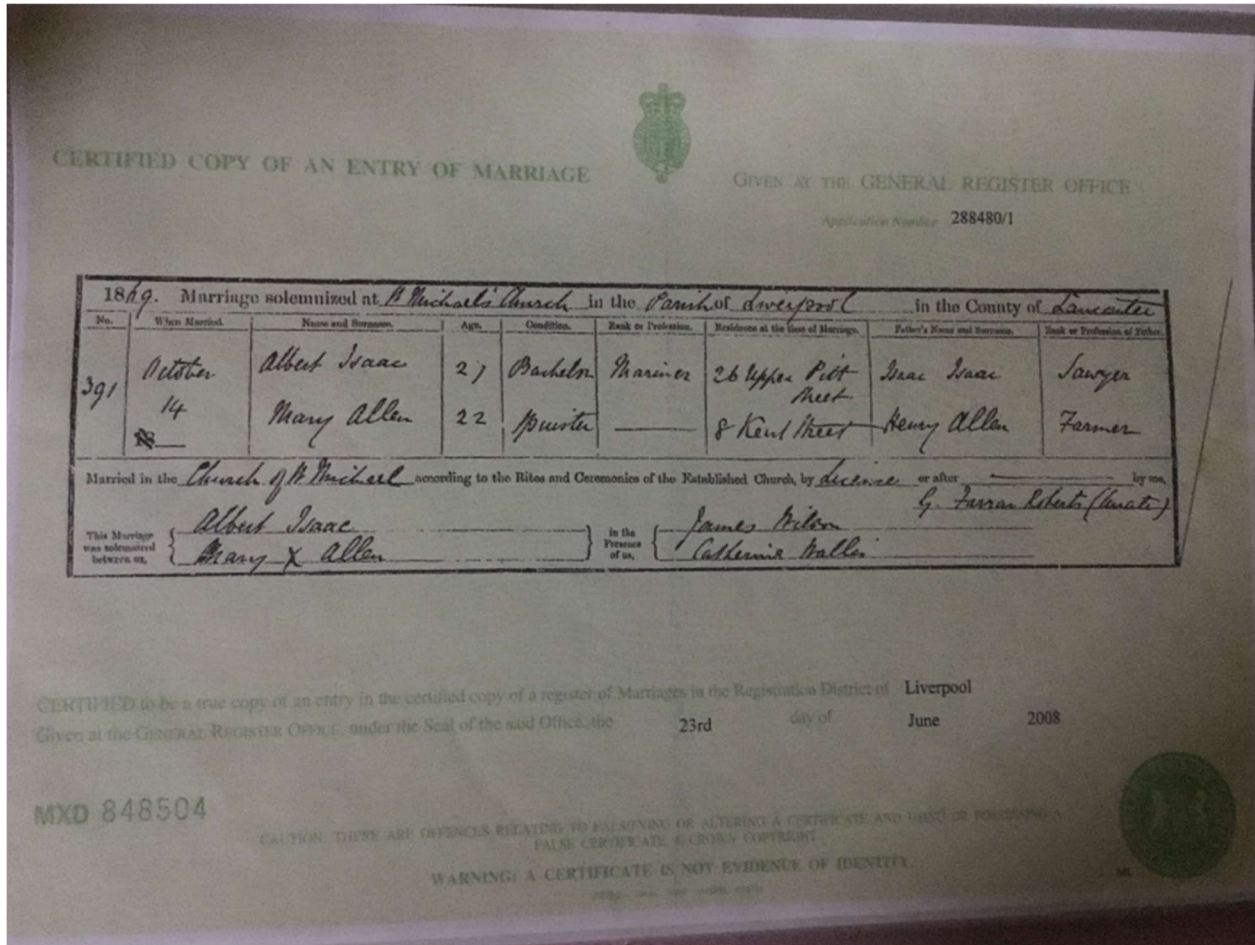 CERTIFIED COPY OF AN ENTRY OF MARRIAGE
GIVEN AT THE GENERAL REGISTER OFFICE
Application Number 288480/1
1869. Marriage solemnized at St Michael's Church in the Parish of Liverpool in the County of Lancaster
No. When Married. Name and Surname. Age. Condition. Rank or Profession. Residence at the time of Marriage. Father's Name and Surname. Rank or Profession of Father.
391 October 14 Albert Isaac 27 Bachelor Mariner 26 Upper Pitt Street Isaac Isaac Sawyer
Mary Allen 22 Spinster 8 Kent Street Henry Allen Farmer
Married in the Church of St Michael according to the Rites and Ceremonies of the Established Church, by Licence or after by me,
G. Farran Roberts (Curate)
This Marriage was solemnized between us, Albert Isaac in the Presence of us, James Wilson
Mary X Allen Catherine Wallis
CERTIFIED to be a true copy of an entry in the certified copy of a register of Marriages in the Registration District of Liverpool
Given at the GENERAL REGISTER OFFICE, under the Seal of the said Office, the 23rd day of June 2008
MXD 848504
CAUTION: THERE ARE OFFENCES RELATING TO FALSIFYING OR ALTERING A CERTIFICATE AND USING OR POSSESSING A
FALSE CERTIFICATE © CROWN COPYRIGHT
WARNING: A CERTIFICATE IS NOT EVIDENCE OF IDENTITY.